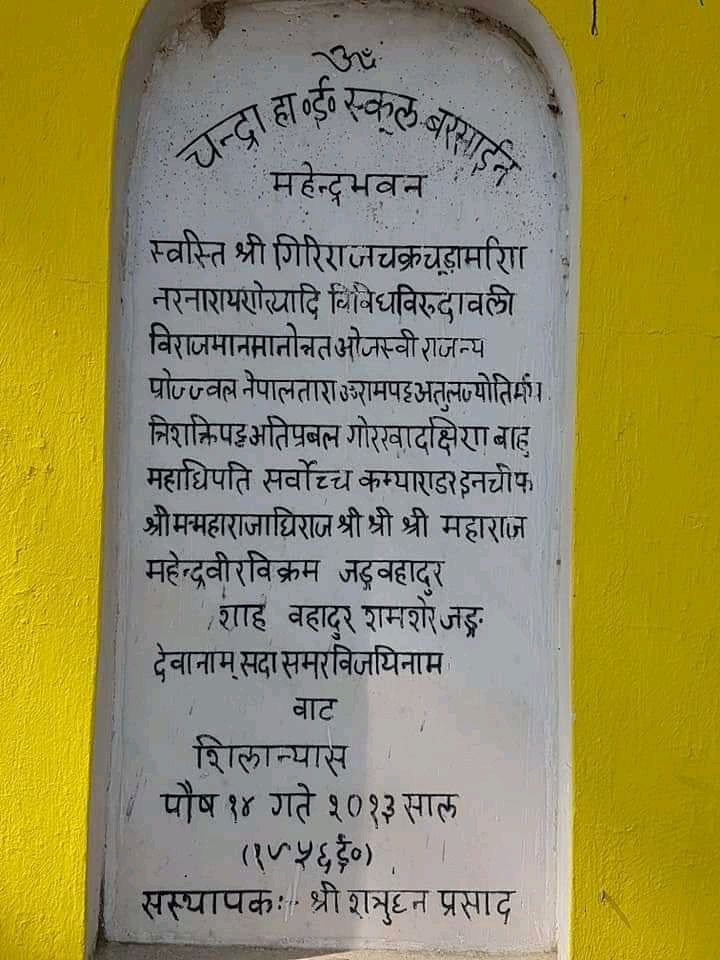 ॐ
चन्द्रा हा०ई० स्कूल बरसाईन
महेन्द्रभवन
स्वस्ति श्री गिरिराजचक्रचूडामरिण
नरनारायरणेत्यादि विविधविरुदावली
विराजमानमानोन्नतओजस्वी राजन्य
प्रोज्ज्वल नेपालताराॐरामपट्टअतुलज्योतिर्मय
त्रिशक्तिपट्टअतिप्रबल गोरखादक्षिरण बाहु
महाधिपति सर्वोच्च कम्याराडरइनचीफ
श्रीमन्महाराजाधिराज श्री श्री श्री महाराज
महेन्द्रवीरविक्रम जङ्गवहादुर
शाह वहादुर शमशेर जङ्ग
देवानाम् सदा समरविजयिनाम
वाट
शिलान्यास
पौष १४ गते २०१३ साल
(१९५६ ई०)
सस्थापकः- श्री शत्रुघ्न प्रसाद